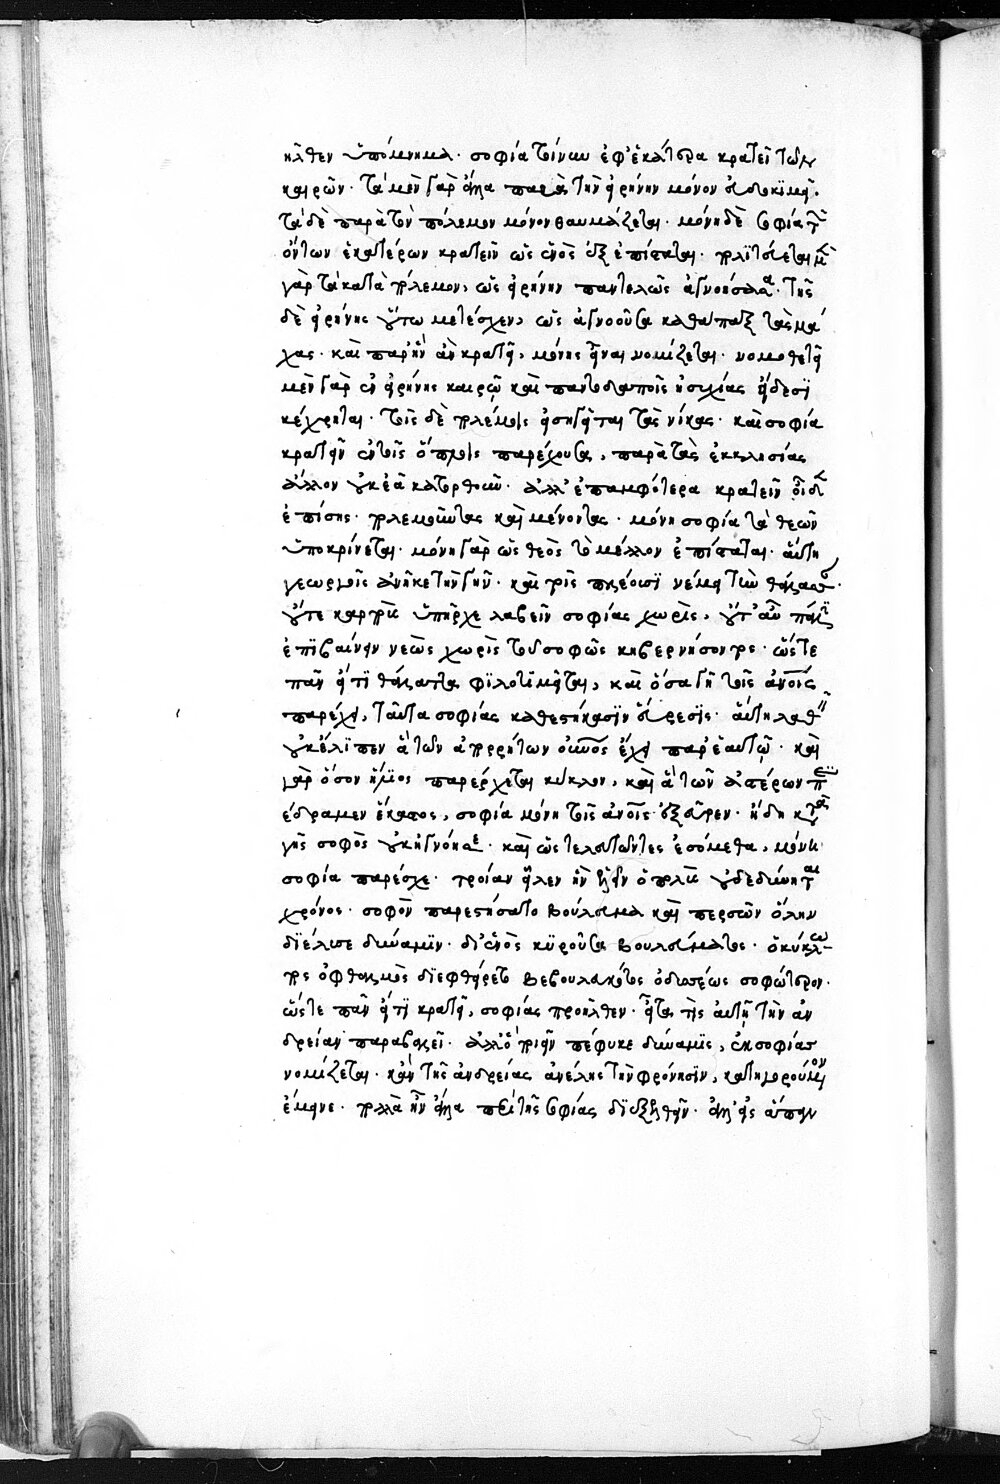 ῆλθεν ὑπόμνημα· σοφία τοίνυν ἐφ' ἑκάτερα κρατεῖ τῶν
καιρῶν· τὰ μὲν γὰρ ἄλλα παρὰ τὴν εἰρήνην μόνον εὐδοκιμεῖ·
τὰ δὲ παρὰ τὸν πόλεμον μόνον θαυμάζεται· μόνη δὲ σοφία τῶν
ὄντων ἑκατέρων κρατεῖν ὡς ἑνὸς ἐξεπίσταται· πολιτεύεται μὲν
γὰρ τὰ κατὰ πόλεμον, ὡς εἰρήνην παντελῶς ἀγνοήσασα· τῆς
δὲ εἰρήνης οὕτω μετέσχεν, ὡς ἀγνοοῦσα καθάπαξ τὰς μά
χας· καὶ παρ' ἣν ἂν κρατῇ, μόνης εἶναι νομίζεται· νομοθετεῖ
μὲν γὰρ ἐν εἰρήνης καιρῷ καὶ παντοδαποῖς ἡσυχίας εἴδεσι
κέχρηται· τοῖς δὲ πολέμοις εἰσηγεῖται τὰς νίκας· καὶ σοφία
κρατεῖν ἐν τοῖς ὅπλοις παρέχουσα, παρὰ τὰς ἐκκλησίας
ἄλλον οὐκ ἐᾷ κατορθοῦν· ἀλλ' ἐπ' ἀμφότερα κρατεῖν οἶδεν
ἐπίσης· πολεμοῦντας καὶ μένοντας· μόνη σοφία τὰ θεῶν
ὑποκρίνεται· μόνη γὰρ ὡς θεὸς τὸ μέλλον ἐπίσταται· αὕτη
γεωργοῖς ἀνῆκε τὴν γῆν· καὶ τοῖς πλέουσι νέμει τὴν θάλασσαν·
οὔτε καρποὺς ὑπῆρχε λαβεῖν σοφίας χωρίς, οὔτ' ἂν πάλιν
ἐπιβαίνειν νεὼς χωρὶς τοῦ σοφῶς κυβερνήσοντος· ὥστε
πᾶν ὅτι θάλαττα φιλοτιμεῖται, καὶ ὅσα γῆ τοῖς ἀνοις
παρέχει, ταῦτα σοφίας καθεστήκασιν εὕρεσις· αὕτη λαθεῖν
οὐκ ἔλιπεν ἃ τῶν ἀπορρήτων οὐνος ἔχει παρ' ἑαυτῷ· καὶ
γὰρ ὅσον ἥλιος παρέρχεται κύκλον, καὶ ἃ τῶν ἀστέρων περι
έδραμεν ἕκαστος, σοφία μόνη τοῖς ἀνοις ἐξεῦρεν· ἤδη κατὰ
γῆς σοφὸς οὐκ ἠγνόησε· καὶ ὡς τελευτῶντες ἐσόμεθα, μόνη
σοφία παρέσχε· τροίαν εἷλεν ἣν ἑλεῖν ὁ πολὺς οὐ δεδύνηται
χρόνος· σοφὸν παρεστήσατο βούλευμα καὶ περσῶν ὅλην
διέλυσε δύναμιν· δι' ἑνὸς κυροῦσα βουλεύματος· ὁ κύκλω
πος ὀφθαλμὸς διεφθείρετο βεβουλευκότος ὀδυσσέως σοφώτερον·
ὥστε πᾶν ὅτι κρατεῖ, σοφίας προῆλθεν· εἶτα τίς αὐτῇ τὴν ἀν
δρείαν παραβαλεῖ· ἀλλ' ὃ ποιεῖν πέφυκε δύναμις, ἐκ σοφίας
νομίζεται· κἂν τῆς ἀνδρείας ἀνέλῃς τὴν φρόνησιν, κατηγορούμενον
ἔμεινε· πολλὰ ἦν ἄλλα περὶ τῆς σοφίας διεξελθεῖν· ἀλλ' εἰς ἅπαν